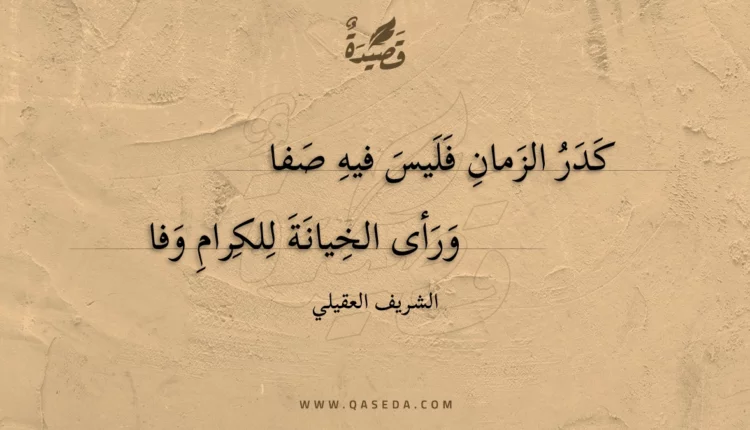 قَصِيْدَةٌ
كَدَرُ الزَمانِ فَلَيسَ فيهِ صَفا
وَرَأى الخِيانَةَ لِلكِرامِ وَفا
الشريف العقيلي
WWW.QASEDA.COM